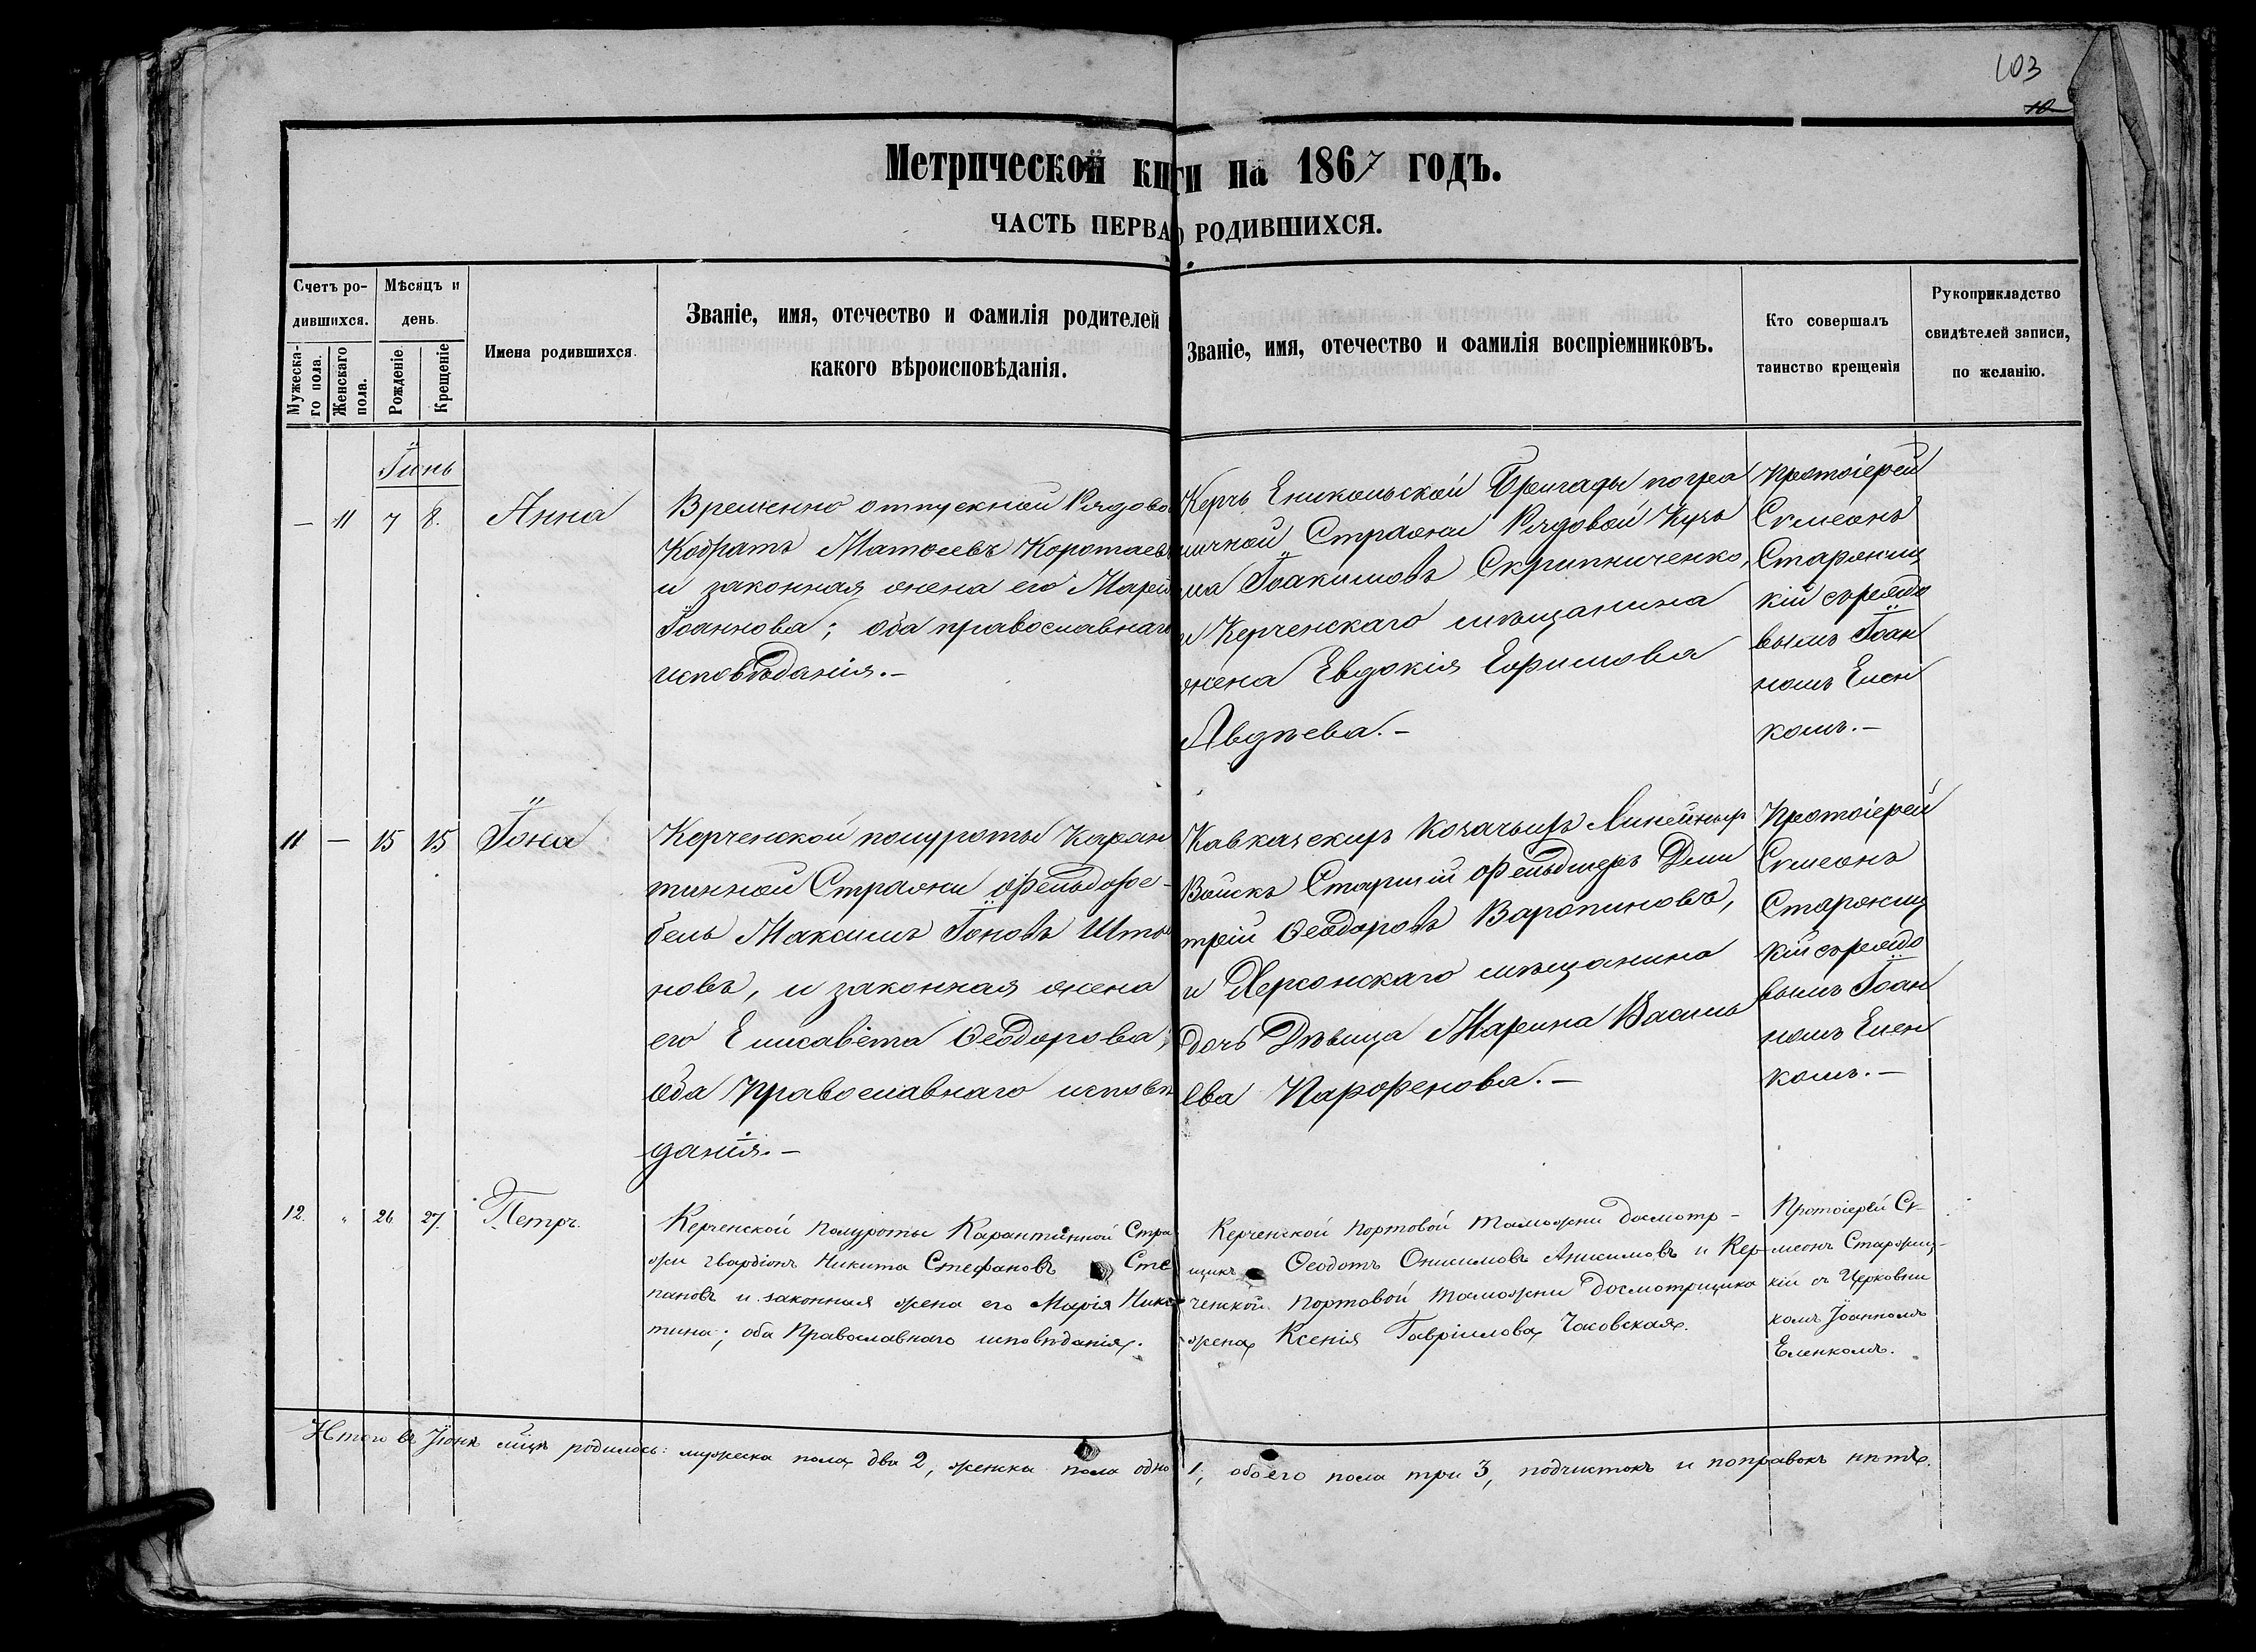 103
10
Метрической книги на 1867 годъ.
ЧАСТЬ ПЕРВАЯ О РОДИВШИХСЯ.
Счетъ ро-
дившихся.
Мужеска-
го пола.
Женскаго
пола.
Мѣсяцъ и
день.
Рожденіе.
Крещеніе
Имена родившихся.
Званіе, имя, отечество и фамилія родителей
какого вѣроисповѣданія.
Званіе, имя, отечество и фамилія воспріемниковъ.
Кто совершалъ
таинство крещенія
Рукоприкладство
свидѣтелей записи,
по желанію.
Іюнь
— 11 7 8. Анна
Временно отпускной Рядово
Кодратъ Матѳеевъ Коротаевъ
и законная жена его Марія
Іоаннова; оба православнаго
исповѣданія.—
Керчь Еникольской Бригады погра
ничной Стражи Рядовой Кузь
ма Іоакимовъ Скрипниченко,
и Керченскаго мѣщанина
жена Евдокія Ефимова
Авдѣева.—
Протоіерей
Сѵмеонъ
Старжиц
кій съ рядо
вымъ Іоан
номъ Елен
комъ.—
11 — 15 15 Іона
Керченской полуроты Каран
тинной Стражи Фельдфе-
бель Максимъ Іоновъ Што
новъ, и законная жена
его Елисавета Ѳеодорова;
оба Православнаго исповѣ
данія.—
Кавказскихъ Козачьихъ Линейныхъ
Войскъ Старшій Фельдшеръ Дми
трій Ѳеодоровъ Варопиновъ,
и Херсонскаго мѣщанина
дочь Дѣвица Марина Василь
ева Парфенова.—
Протоіерей
Сѵмеонъ
Старжиц
кій съ рядо
вымъ Іоан
номъ Елен
комъ.—
12. " 26 27. Петръ.
Керченской Полуроты Карантинной Стра
жи гвардіонъ Никита Стефановъ Сте
пановъ и законная жена его Марія Ники
тина; оба Православнаго исповѣданія.
Керченской Портовой таможни досмотр-
щикъ Ѳеодотъ Онисимовъ Анисимовъ и Кер-
ченской Портовой таможни досмотрщика
жена Ксенія Гавріилова Часовская.
Протоіерей Сѵ-
меонъ Старжиц-
кій съ Церковни
комъ Іоанномъ
Еленкомъ.
Итого въ Іюнѣ м-цѣ родилось: мужеска пола два 2, женска пола одно 1, обоего пола три 3, подчистокъ и поправокъ нѣтъ.